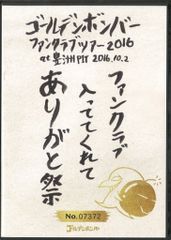 ゴールデンボンバー
ファンクラブツアー2016
at 豊洲PIT 2016.10.2
ファンクラブ
入っててくれて
ありがと祭
No.07372
ゴールデンボンバー